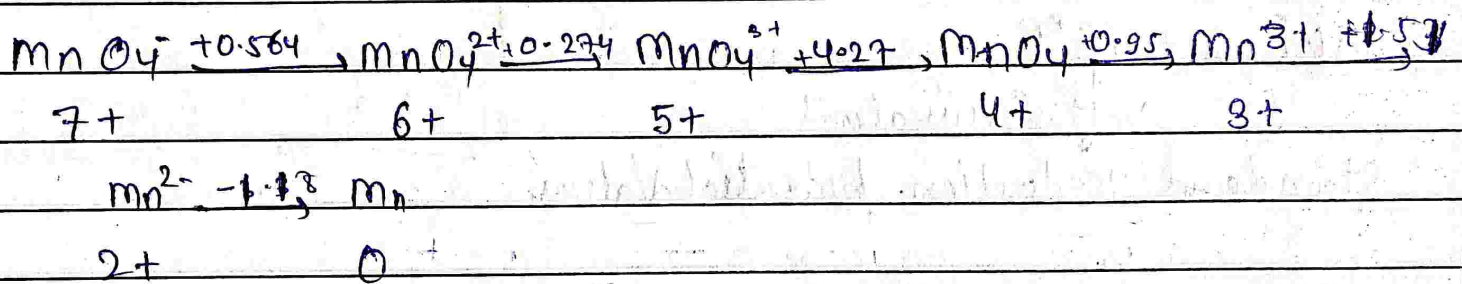 MnO4⁻ +0.564→ MnO4²⁺ +0.274→ MnO4³⁺ +4.27→ MnO4 +0.95→ Mn³⁺ +1.51→
7+ 6+ 5+ 4+ 3+
Mn²⁻ -1.18→ Mn
2+ 0